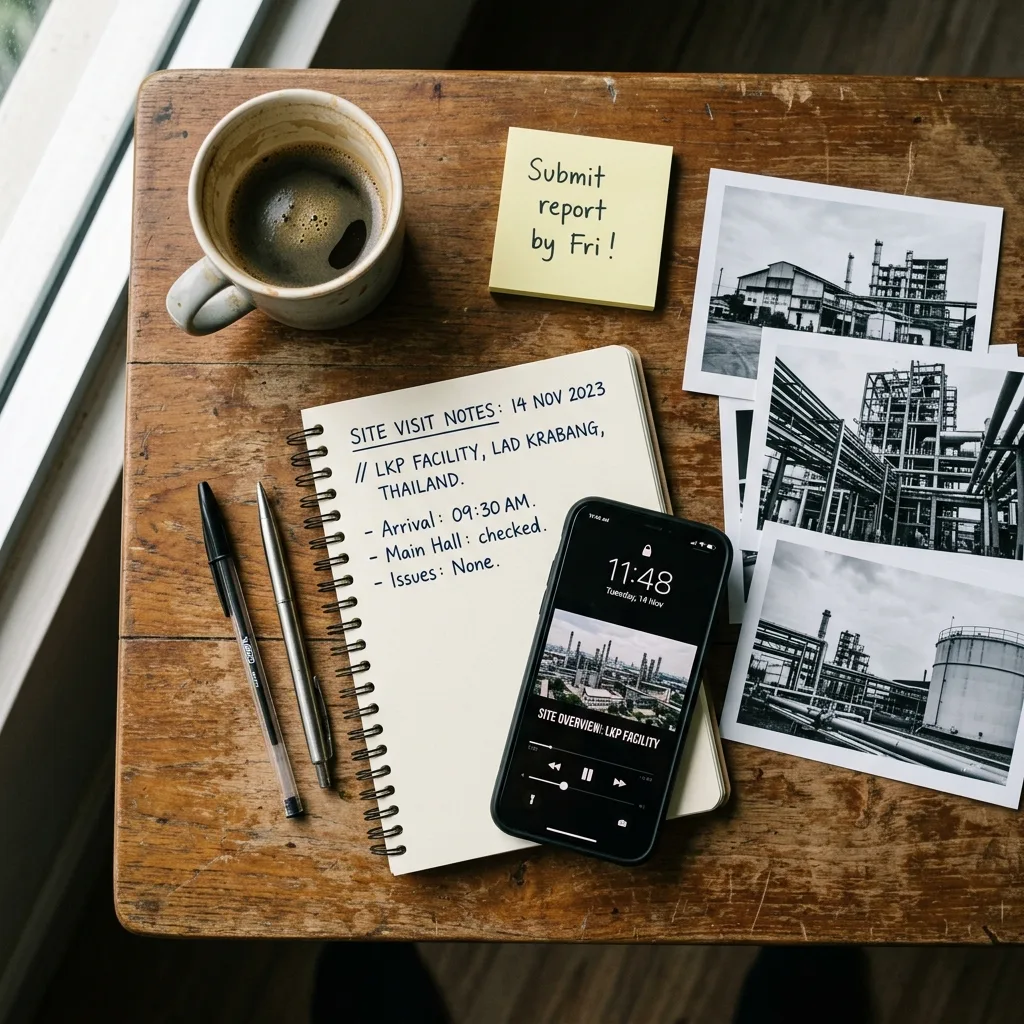 Submit
report
by Fri !
SITE VISIT NOTES: 14 NOV 2023
// LKP FACILITY, LAD KRABANG,
THAILAND.
- Arrival: 09:30 AM.
- Main Hall: checked.
- Issues: None.
11:48
Tuesday, 14 Nov
SITE OVERVIEW: LKP FACILITY